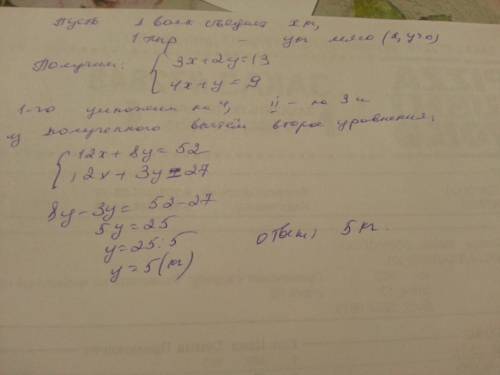 Пусть 1 волк съедает x кг,
1 тигр - y кг мяса (x, y>0)
Получим: { 3x+2y=13
4x+y=9
1-го умножим на 4, II - на 3 и
из полученного вычтем второе уравнения,
{ 12x+8y=52
12x+3y=27
8y-3y=52-27
5y=25
y=25:5
y=5(кг)
ответ, 5 кг.